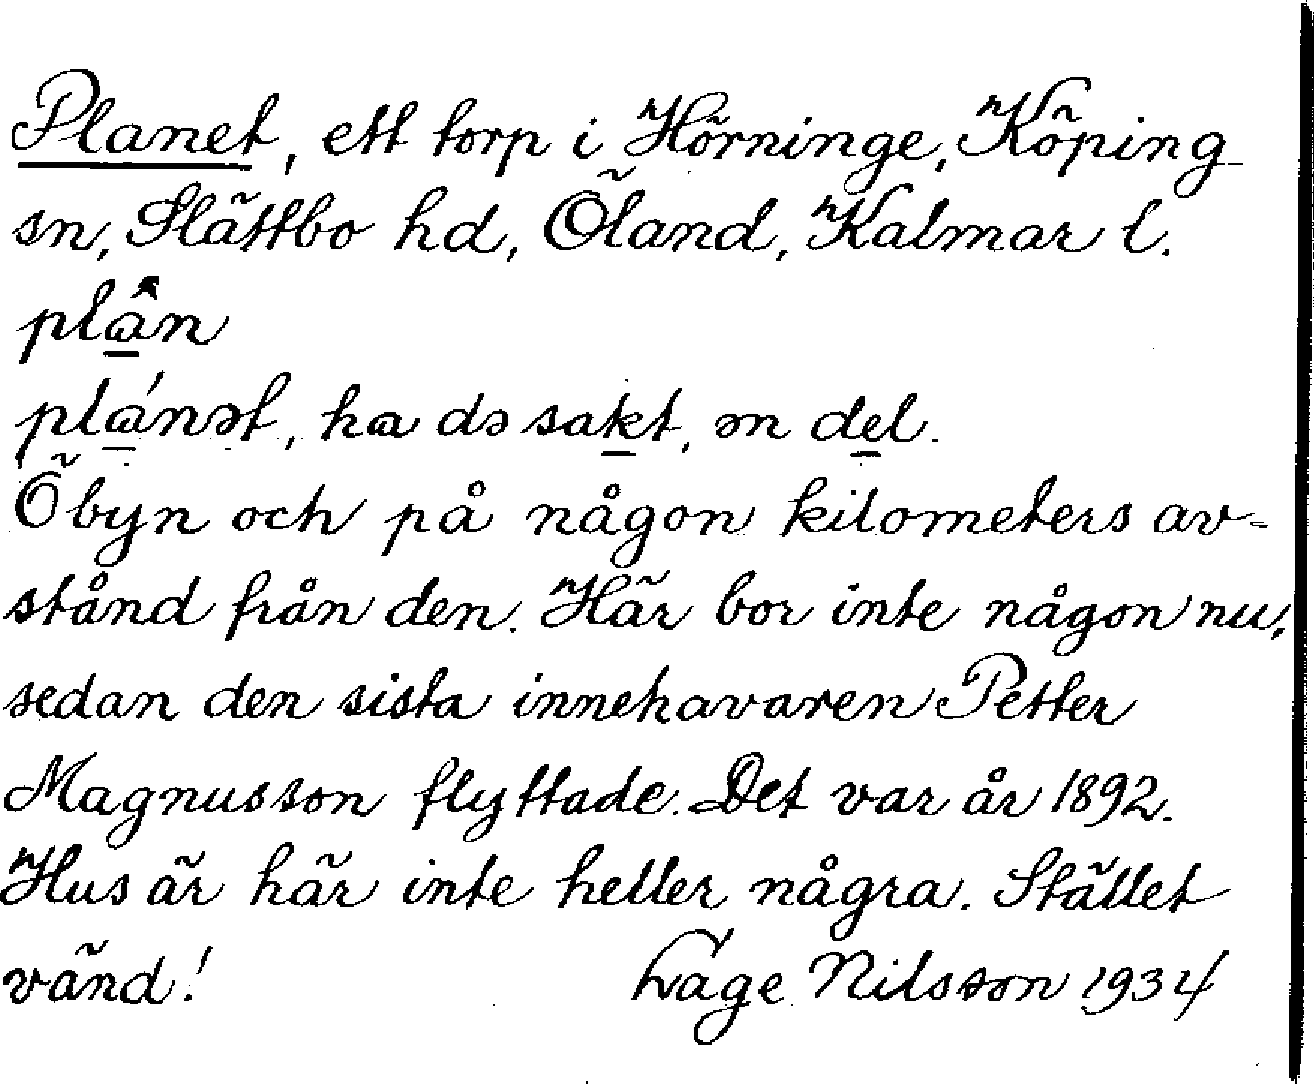 Planet, ett torp i Hörninge, Köping
sn, Slättbo hd, Öland, Kalmar l.
plân
plánət, ka də sakt, ən del.
Ö byn och på någon kilometers av-
stånd från den. Här bor inte någon nu,
sedan den sista innehavaren Petter
Magnusson flyttade. Det var år 1892.
Hus är här inte heller några. Stället
vänd! Låge Nilsson 1934